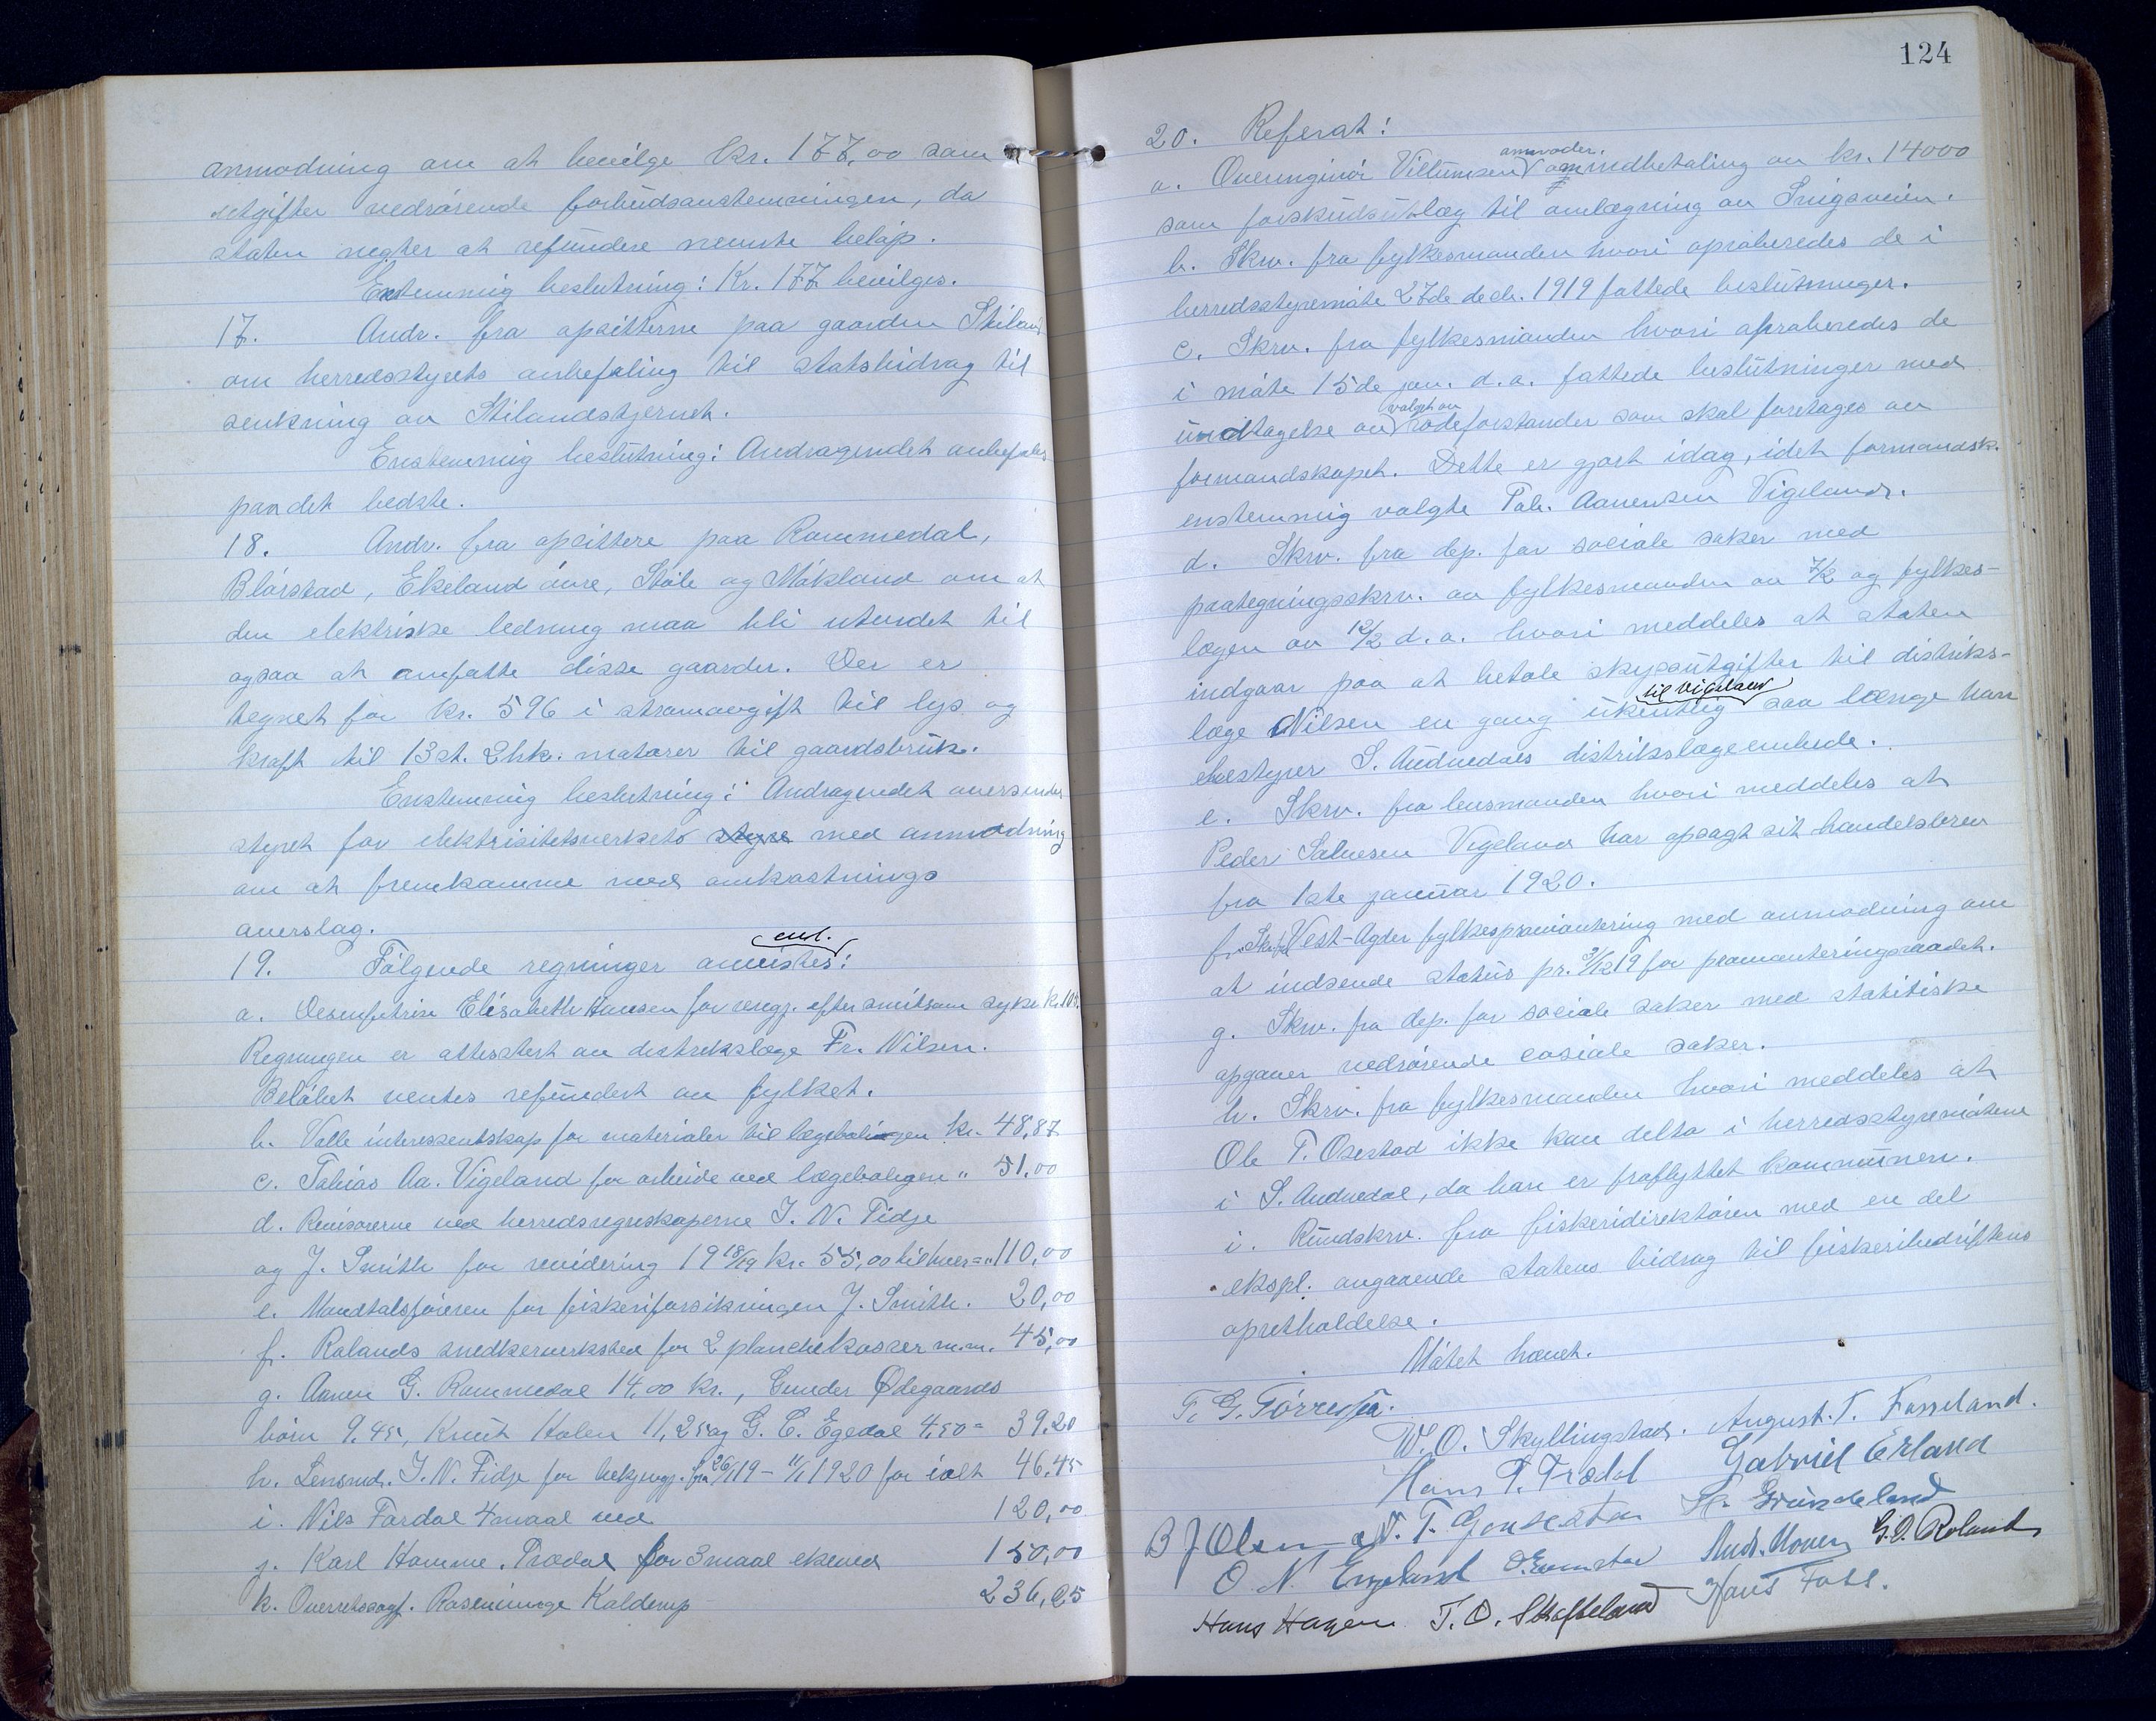 anmodning om at bevilge kr. 177,00 som
utgifter vedrørende forbudsavstemningen, da
staten negter at refundere nevnte beløp.
Enstemmig beslutning: Kr. 177 bevilges.
17. Andr. fra opsitterne paa gaarden Stiland
om herredsstyrets anbefaling til statsbidrag til
senkning av Stilandstjernet.
Enstemmig beslutning: Andragendet anbefales
paa det bedste.
18. Andr. fra opsittere paa Rommedal,
Blørstad, Ekeland øvre, Støle og Møkland om at
den elektriske ledning maa bli utvidet til
ogsaa at omfatte disse gaarder. Der er
tegnet for kr. 596 i strømavgift til lys og
kraft til 13 st. 2 hk. motorer til gaardsbruk.
Enstemmig beslutning: Andragendet oversendes
styret for elektrisitetsverkets styre med anmodning
om at fremkomme med omkostnings
overslag.
19. Følgende regninger anvistes enst.:
a. Desinfektrise Elisabeth Hansen for rengj. efter smitsom syke kr. 10
Regningen er attestert av distrikslæge Fr. Nilsen.
Beløbet ventes refundert av fylket.
b. Valle interessentskap for materialer til lægeboligen kr. 48,87
c. Tobias Aa. Vigeland for arbeide ved lægeboligen " 51,00
d. Revisorerne ved herredsregnskaperne I. N. Fidje
og J. Smith for revidering 19 18/19 kr. 55,00 til hver = " 110,00
e. Mandtalsføreren for fiskeriforsikringen J. Smith. 20,00
f. Rolands snedkerverksted for 2 planchekasser m.m. 45,00
g. Aanen G. Rommedal 14,00 kr., Gunder Ødegaards
børn 9,45, Knut Holen 11,25 og G. C. Egedal 4,50 = 39,20
h. Lensmd. I. N. Fidje for bekjengj. fra 26/1 19 – 11/1 1920 for ialt 46,45
i. Nils Fardal 4 maal ved 120,00
j. Karl Homme, Trædal for 3 maal ekeved 150,00
k. Overretssagf. Roseninge Kalderup 236,25
124
20. Referat:
a. Overingeniør Villumsen anmoder om indbetaling av kr. 14000
som forskudsutlæg til omlægning av Snigsveien.
b. Skrv. fra fylkesmanden hvori aproberedes de i
herredsstyremøte 27de decbr. 1919 fattede beslutninger.
c. Skrv. fra fylkesmanden hvori aproberedes de
i møte 15de jan. d.a. fattede beslutninger med
undtagelse av valget av rodeforstander som skal foretages av
formandskapet. Dette er gjort idag, idet formandsk.
enstemmig valgte Tob. Aanensen Vigeland.
d. Skrv. fra dep. for sociale saker med
paategningsskrv. av fylkesmanden av 7/2 og fylkes-
lægen av 12/2 d.a. hvori meddeles at staten
indgaar paa at betale skyssutgifter til distriks-
læge Nilsen en gang ukentlig til Vigeland saa længe han
bestyrer S. Audnedals distrikslægeembede.
e. Skrv. fra lensmanden hvori meddeles at
Peder Salvesen Vigeland har opsagt sit handelsbrev
fra 1ste januar 1920.
f. Skr. fra Vest-Agder fylkesproviantering med anmodning om
at indsende status pr. 31/12 19 for provianteringsraadet.
g. Skrv. fra dep. for sociale saker med statitiske
opgaver vedrørende cosiale saker.
h. Skrv. fra fylkesmanden hvori meddeles at
Ole T. Osestad ikke kan delta i herredsstyremøtene
i S. Audnedal, da han er fraflyttet kommunen.
i. Rundskrv. fra fiskeridirektøren med en del
ekspl. angaaende statens bidrag til fiskeribedriftens
opretholdelse.
Møtet hævet.
T. G. Tørresen.
W. O. Skyllingstad. August. T. Fasseland.
Hans P. Trædal Gabriel Erland
B J Olsen N. T. Gonsestan
O. N. Engeland And. Moven G. O. Roland
Hans Hagen T. O. Skofteland Hans Foss.